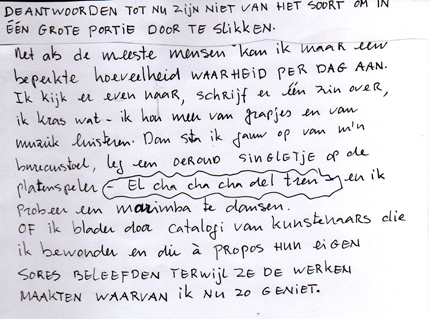 DE ANTWOORDEN TOT NU ZIJN NIET VAN HET SOORT OM IN
ÉÉN GROTE PORTIE DOOR TE SLIKKEN.
Net als de meeste mensen kan ik maar een
beperkte hoeveelheid WAARHEID PER DAG AAN.
Ik kijk er even naar, schrijf er één zin over,
ik kras wat - ik hou meer van grapjes en van
muziek luisteren. Dan sta ik gauw op van m'n
bureaustoel, leg een OEROUD SINGLETJE op de
platenspeler - El cha cha cha del tren - en ik
probeer een marimba te dansen.
OF ik blader door catalogi van kunstenaars die
ik bewonder en die à PROPOS HUN EIGEN
SORES BELEEFDEN TERWIJL ZE DE WERKEN
MAAKTEN WAARVAN iK NU ZO GENIET.